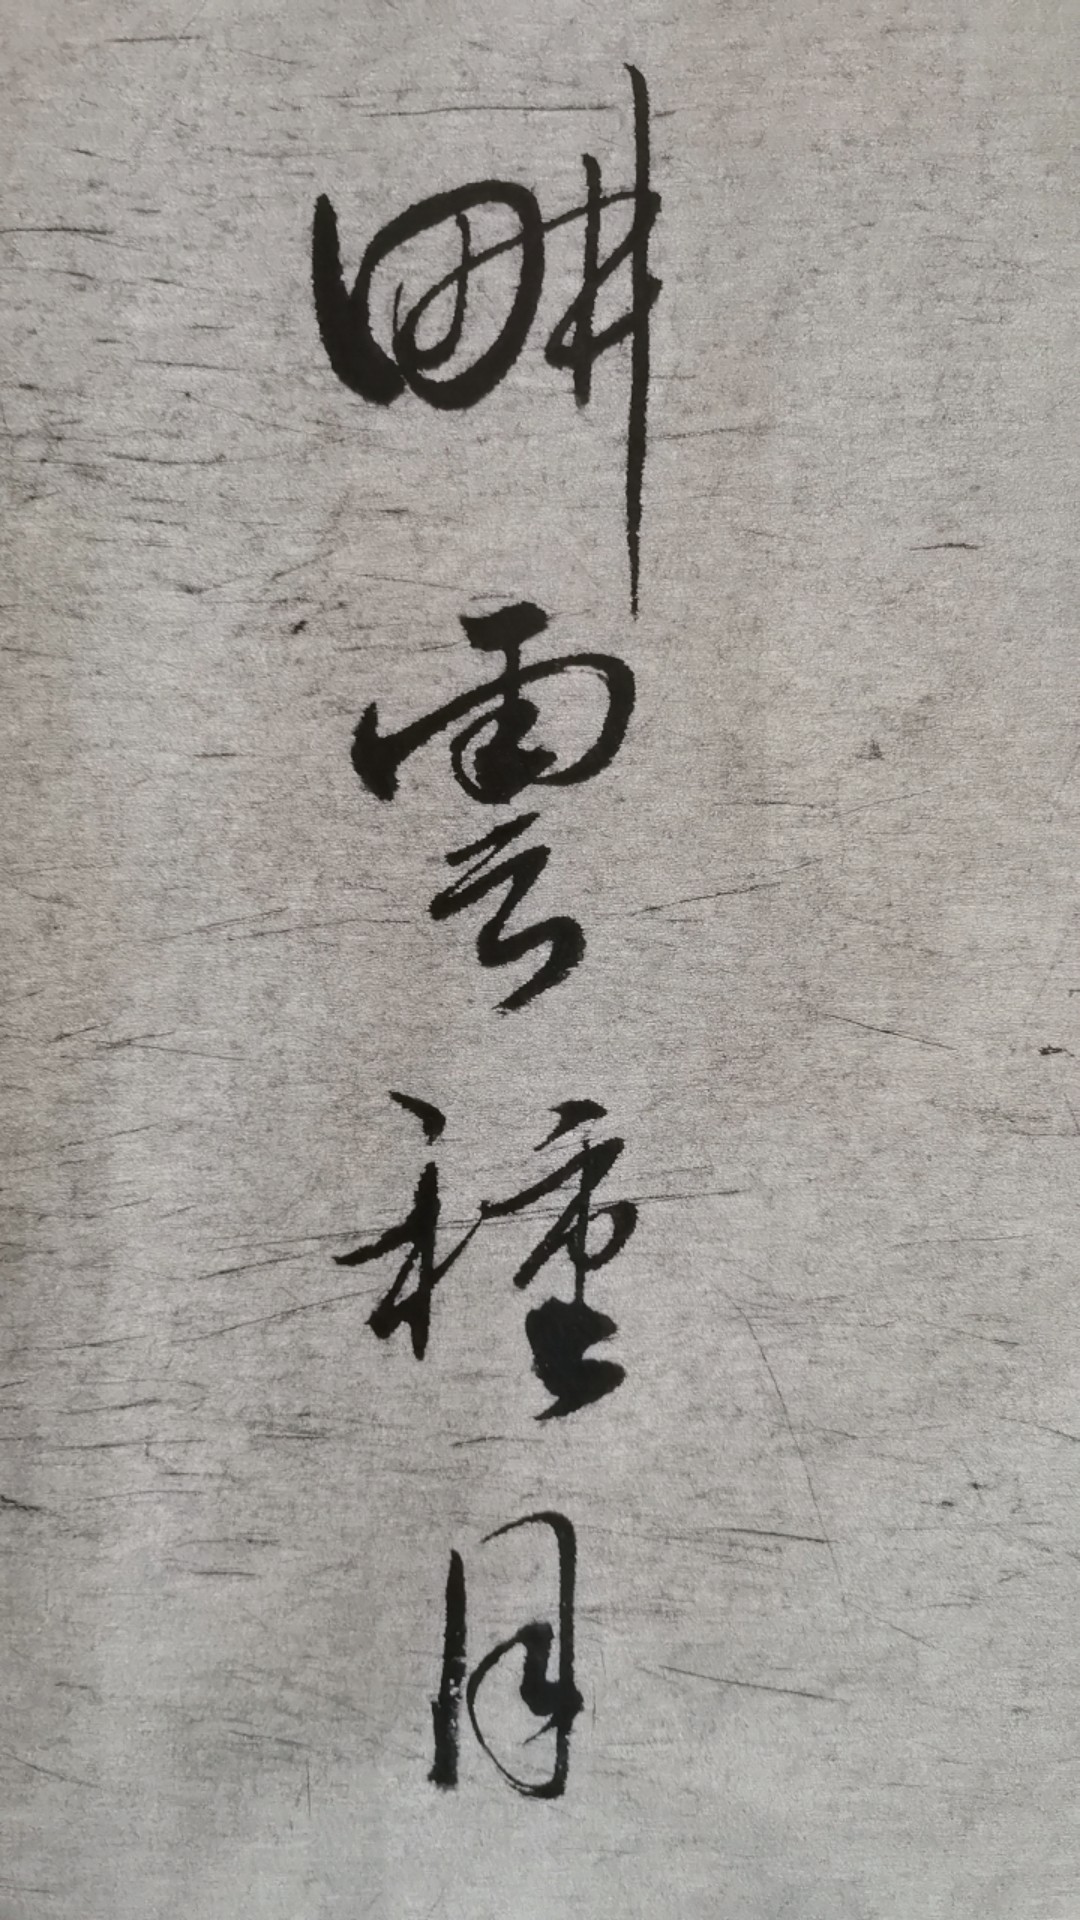 畊雲種月